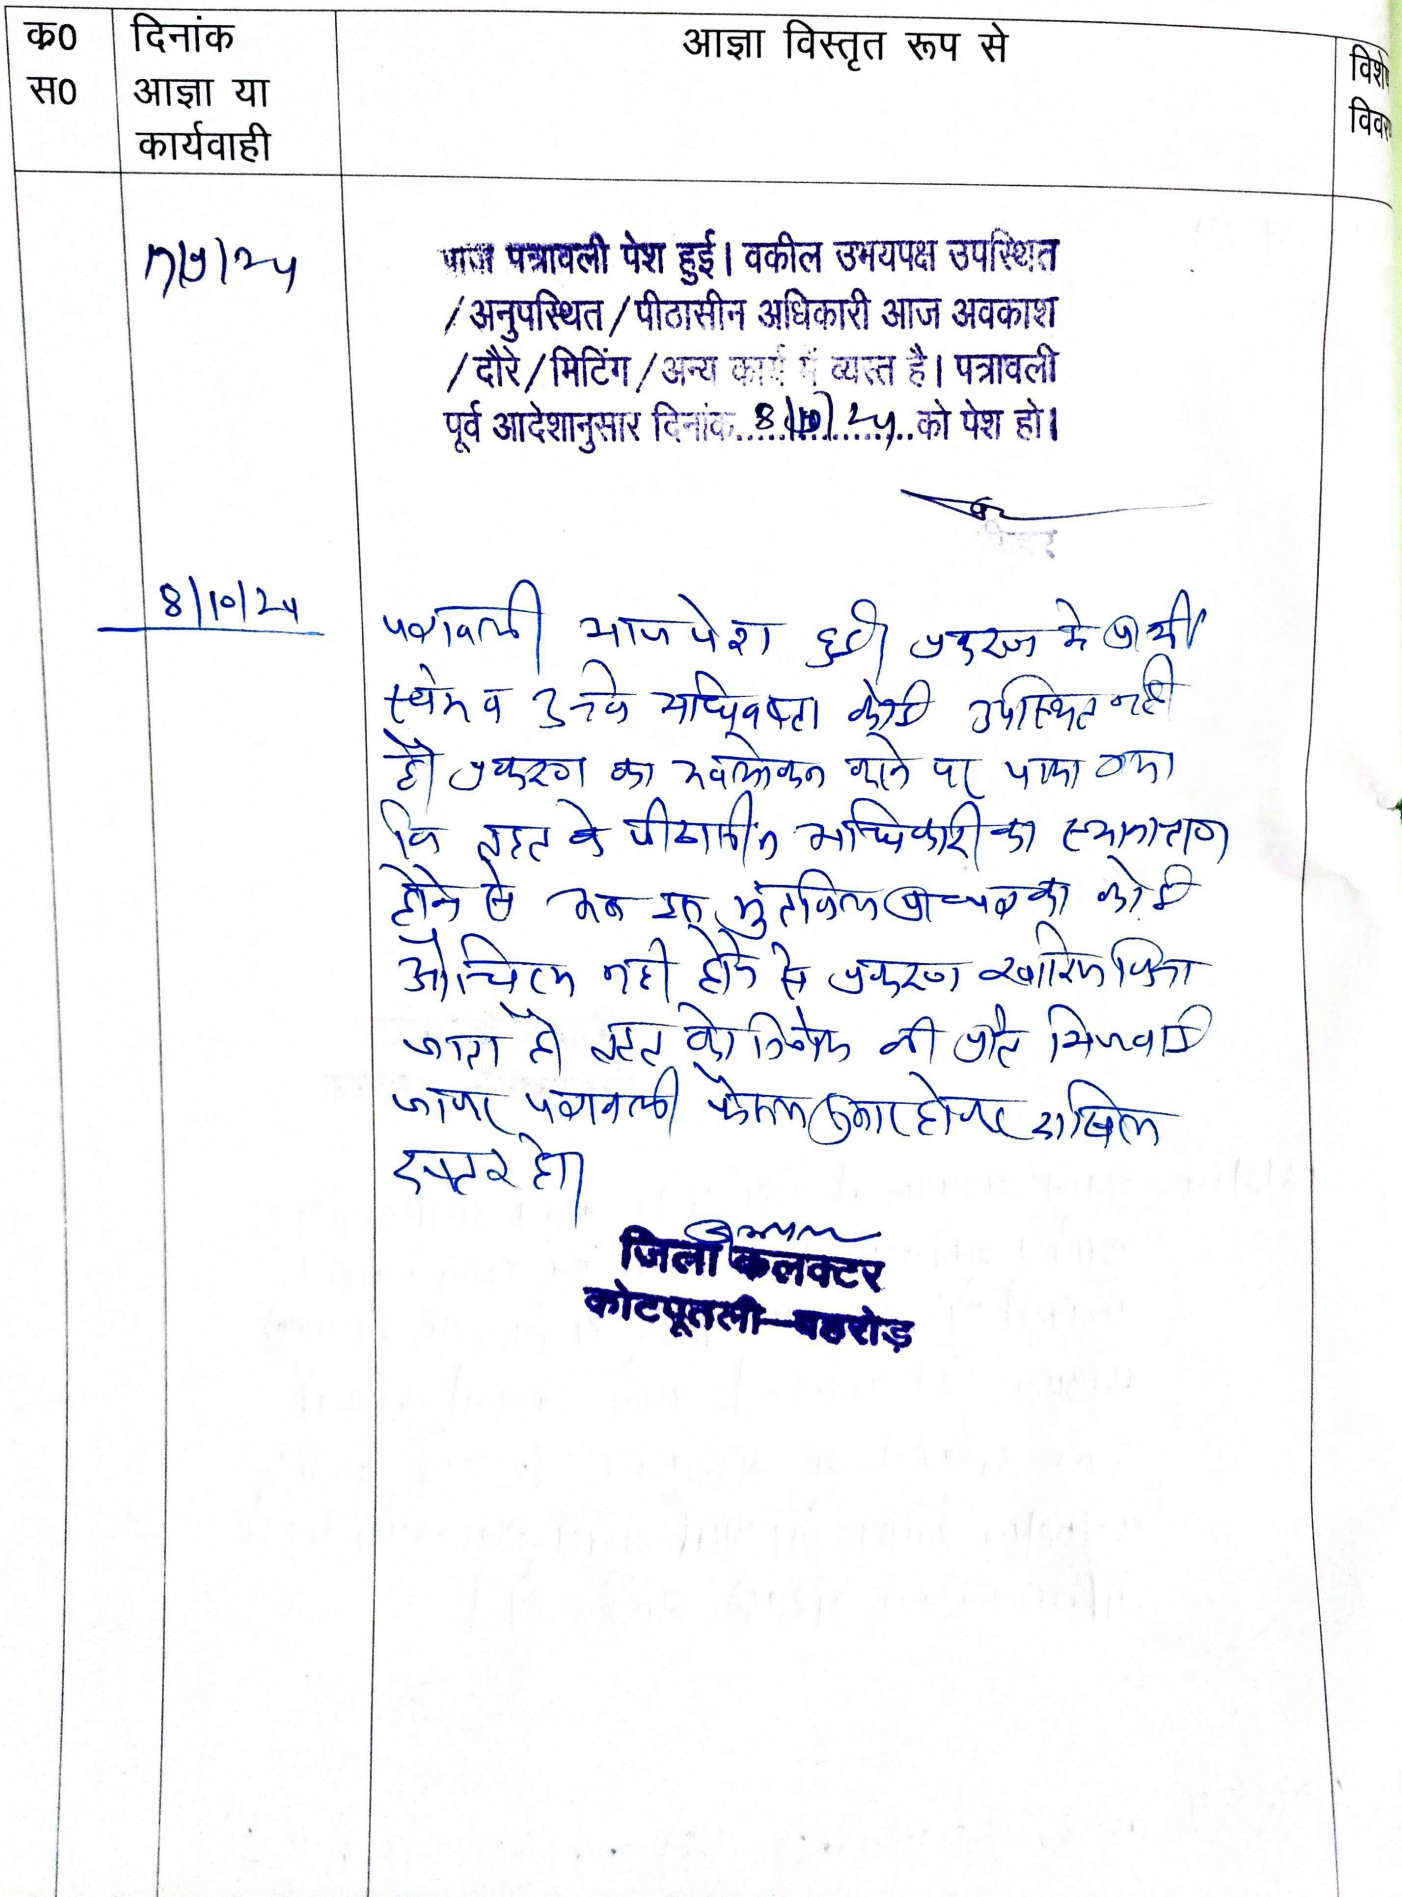 क0 स0
दिनांक आज्ञा या कार्यवाही
आज्ञा विस्तृत रूप से
पत्रावली पेश हुई। वकील उभयपक्ष उपस्थित
/अनुपस्थित/पीठासीन अधिकारी आज अवकाश
/दौरे/मिटिंग/अन्य कार्य में व्यस्त है। पत्रावली
पूर्व आदेशानुसार दिनांक 8/10/24 को पेश हो।
8/10/24
पत्रावली आज पेश हुई। प्रकरण में प्रार्थी
स्वंय व उनके अधिवक्ता कोई उपस्थित नही
है। प्रकरण का अवलोकन करने पर पाया गया
कि तहत के पीठासीन अधिकारी का स्थानान्तरण
होने से अब इस मुंतकिल प्रा०पत्र का कोई
औचित्य नही होने से प्रकरण खारिज किया
जाता है। तहत को निर्णय की प्रति भिजवाई
जावे। पत्रावली फैसल शुमार होकर दाखिल
दफ्तर हो।
जिला कलक्टर
कोटपूतली-बहरोड़